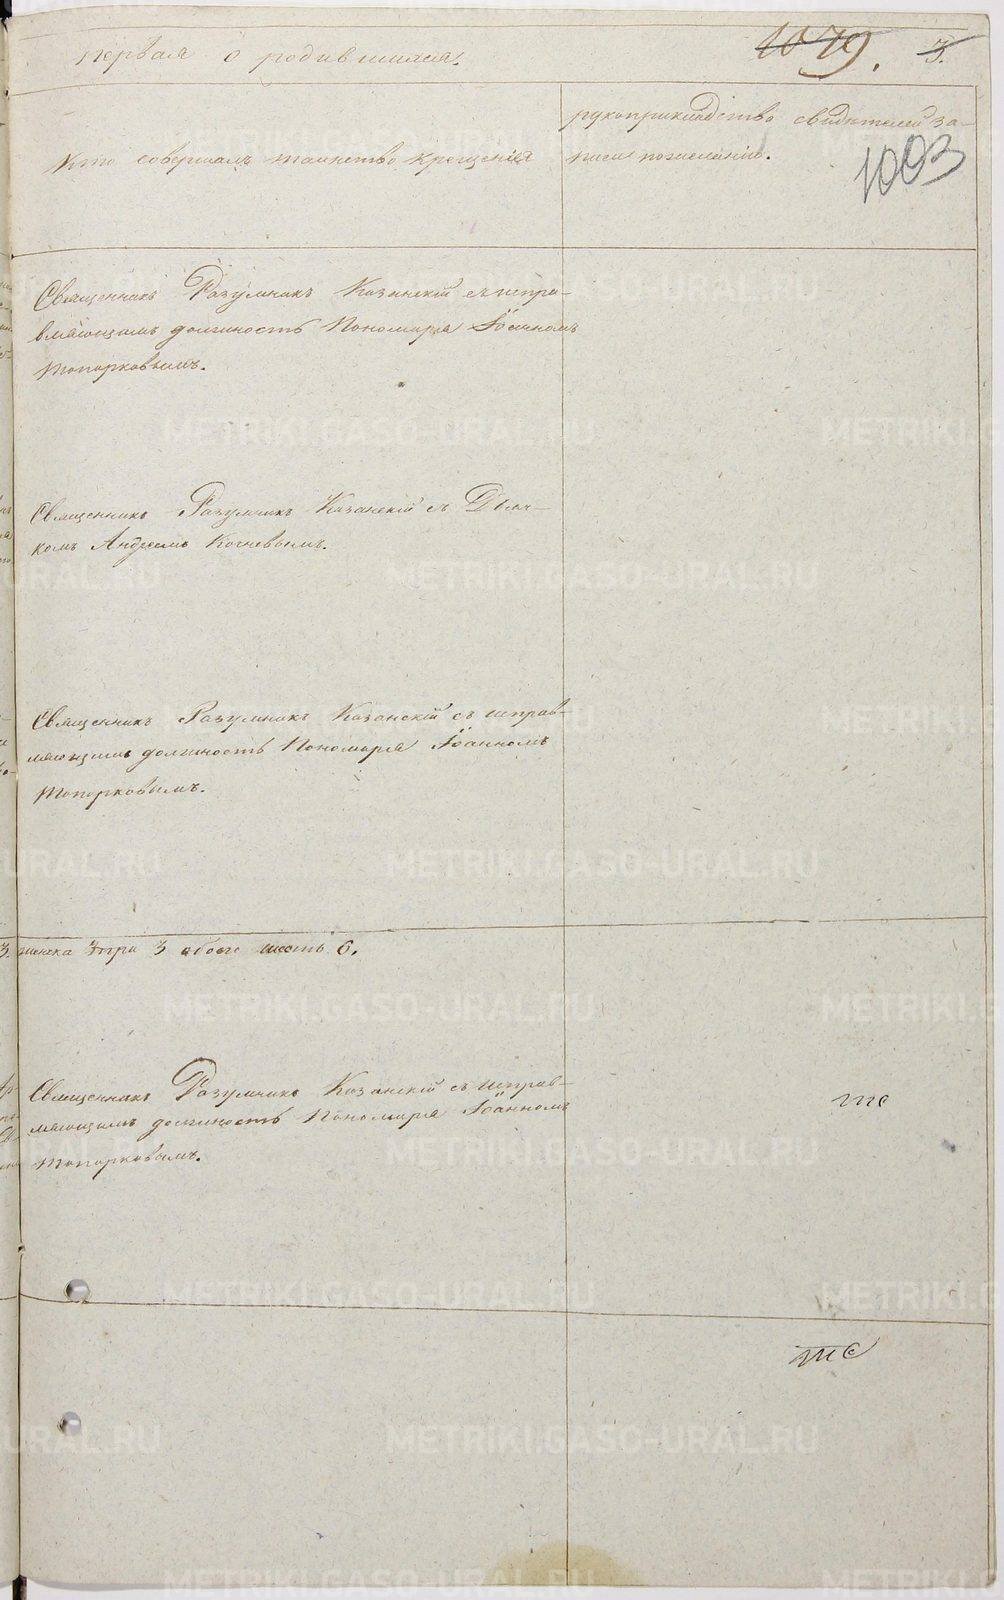 первая о родившихся.
1079. 3.
Кто совершалъ таинство крещенія
рукоприкладство свидѣтелей за-
писи по желанію.
1003
Священникъ Разумникъ Казанскій съ испра-
вляющимъ должность Пономаря Іоанномъ
Топорковымъ.
Священникъ Разумникъ Казанскій съ Дьяч-
комъ Андреемъ Кочневымъ.
Священникъ Разумникъ Казанскій съ исправ-
ляющимъ должность Пономаря Іоанномъ
Топорковымъ.
3. женска три 3 обоего шесть 6.
Священникъ Разумникъ Казанскій съ исправ-
ляющимъ должность Пономаря Іоанномъ
Топорковымъ.
METRIKI.GASO-URAL.RU